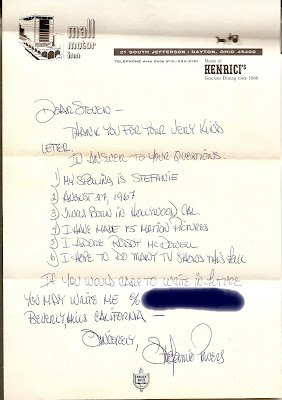 mall
motor
inn
21 SOUTH JEFFERSON - DAYTON, OHIO 45402
TELEPHONE Area Code 513-
Home of
HENRICI'S
Gracious Dining since 1868
DEAR STEVEN -
THANK YOU FOR YOUR VERY KIND
LETER.
IN ANSWER TO YOUR QUESTIONS:
1) MY SPELLING IS STEFANIE
2) AUGUST 27, 1967
3) I WAS BORN IN HOLLYWOOD CAL.
4) I HAVE MADE 15 MOTION PICTURES
5) I ADORE RODDY McDOWELL
6) I HOPE TO DO MANY TV SHOWS THIS FALL
IF YOU WOULD CARE TO WRITE IN FUTURE
YOU MAY WRITE ME c/o
BEVERLY HILLS CALIFORNIA —
SINCERELY, Stefanie Powers